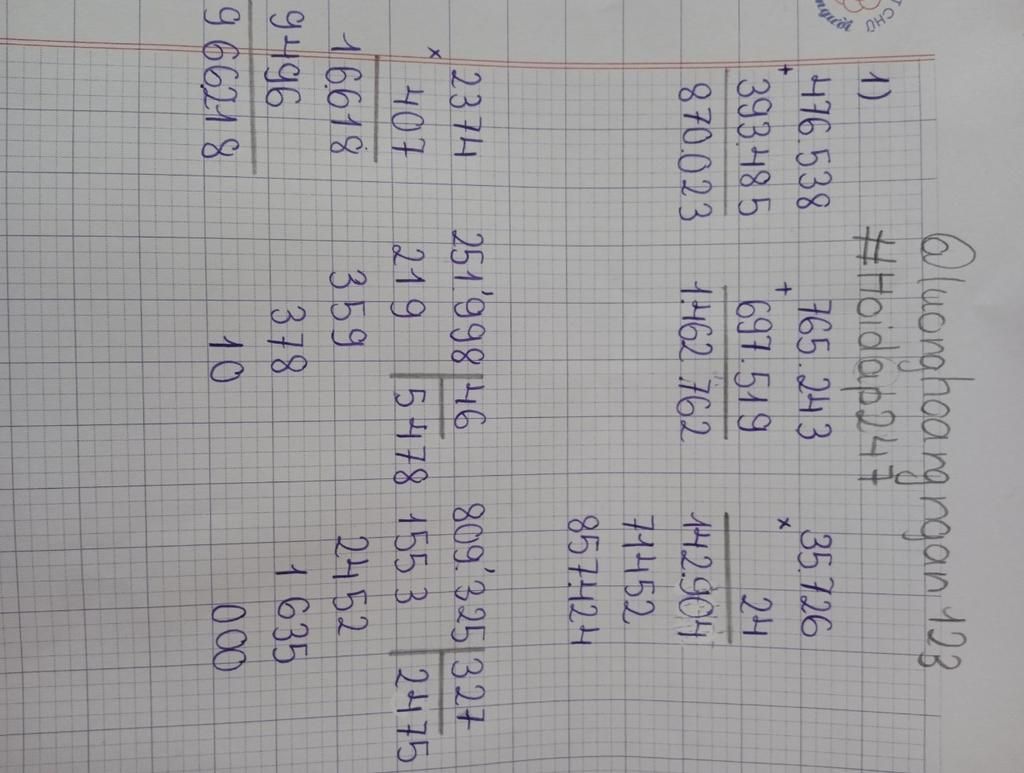 @luonghoangngan123
#Hoidap247
1)
476.538 + 393.485
870.023
765.243 + 697.519
1.462.762
35.726 × 24
142.904
71452
857.424
2374 × 407
16.618
9496
966.218
251'998 46
219 5478
359
378
10
809'325 327
1553 2475
2452
1635
000